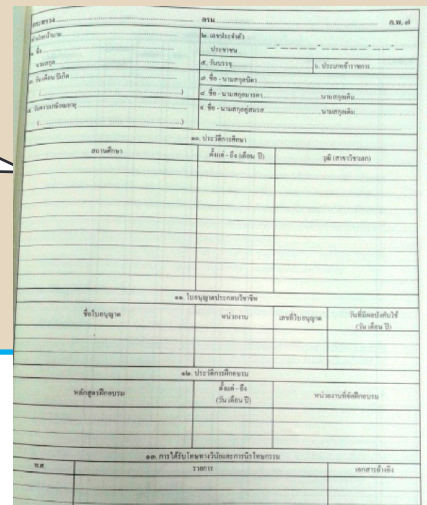 กระทรวง กรม ก.พ. ๗
คำนำหน้านาม ๒. เลขประจำตัว
๑. ชื่อ ประชาชน
นามสกุล ๕. วันบรรจุ ๖. ประเภทข้าราชการ
๓. วันเดือนปีเกิด ๗. ชื่อ - นามสกุลบิดา
() ๘. ชื่อ - นามสกุลมารดา นามสกุลเดิม
๔. วันครบเกษียณอายุ ๙. ชื่อ - นามสกุลคู่สมรส นามสกุลเดิม
()
๑๐. ประวัติการศึกษา
สถานศึกษา ตั้งแต่ - ถึง (เดือน ปี) วุฒิ (สาขาวิชาเอก)
๑๑. ใบอนุญาตประกอบวิชาชีพ
ชื่อใบอนุญาต หน่วยงาน เลขที่ใบอนุญาต วันที่มีผลบังคับใช้
(วัน เดือน ปี)
๑๒. ประวัติการฝึกอบรม
หลักสูตรฝึกอบรม ตั้งแต่ - ถึง หน่วยงานที่จัดฝึกอบรม
(วัน เดือน ปี)
๑๓. การได้รับโทษทางวินัยและการนิรโทษกรรม
พ.ศ. รายการ เอกสารอ้างอิง